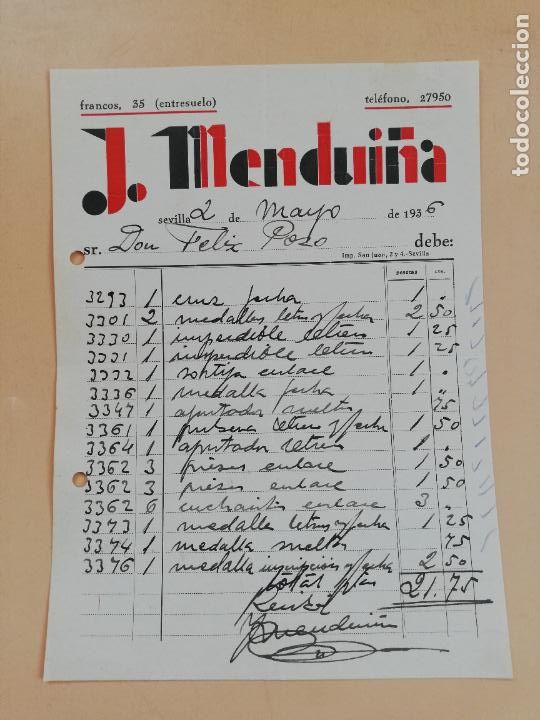 francos, 35 (entresuelo) teléfono, 27950
J. Menduiña
sevilla 2 de Mayo de 1936
sr. Don Felix Pozo debe:
Imp. San Juan, 2 y 4.-Sevilla
pesetas cts.
3293 1 cruz fecha 1 "
3301 2 medallas letras y fecha 2 50
3330 1 imperdible letras 1 25
3331 1 imperdible letras 1 25
3332 1 sortija enlace 1 "
3336 1 medalla fecha 1 "
3347 1 apretador 75
3361 1 pulsera letras y fecha 1 50
3364 1 apretador letras 1 "
3362 3 enlace 1 50
3362 3 enlace 1 50
3362 6 cucharitas enlace 3 "
3373 1 medalla letras y fecha 1 25
3374 1 medalla 75
3376 1 medalla inscripción y fecha 2 50
total ptas 21.75
Recibí
J. Menduiña
todocoleccion